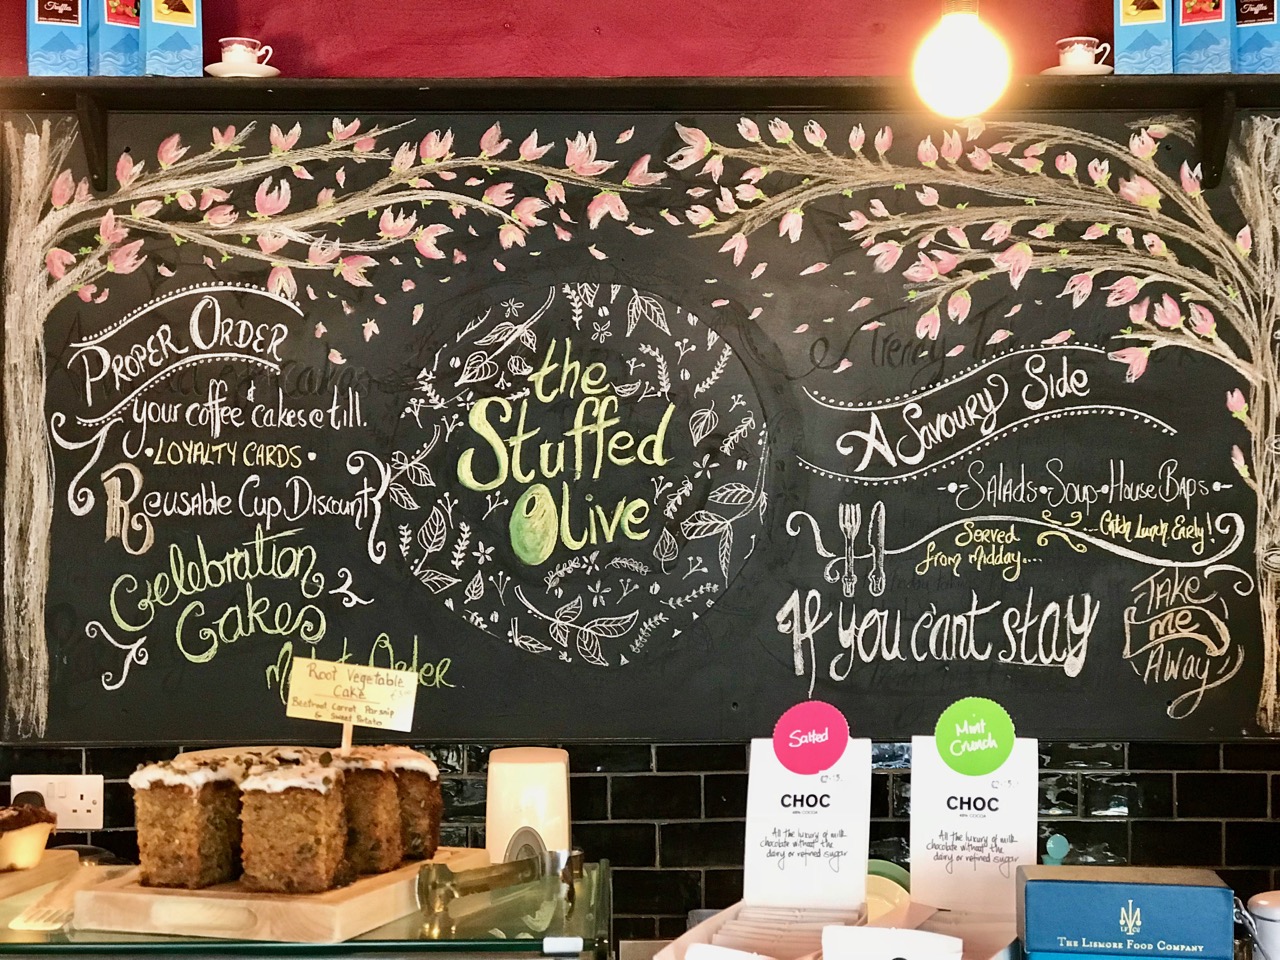 Truffles
PROPER ORDER
your coffee & cakes @ till.
• LOYALTY CARDS •
Reusable Cup Discount
Celebration
Cakes
Order
the
Stuffed
Olive
Trendy
A Savoury Side
Salads • Soup • House Baps
Served
from midday...
Catch Lunch Early!
If you can't stay
TAKE
me
AWAY
Root Vegetable
Cake
Beetroot, Carrot, Parsnip
& Sweet Potato
Salted
CHOC
COCOA
All the luxury of milk
chocolate without the
dairy or refined sugar
Mint
Crunch
CHOC
COCOA
All the luxury of milk
chocolate without the
dairy or refined sugar
THE LISMORE FOOD COMPANY